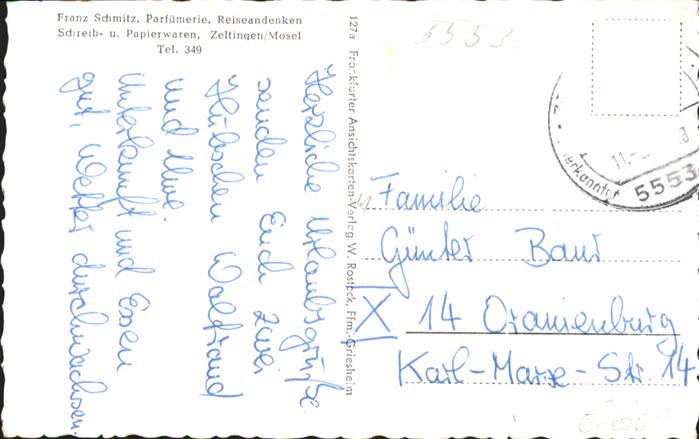 Franz Schmitz, Parfümerie, Reiseandenken
Schreib- u. Papierwaren, Zeltingen/Mosel
Tel. 349
Herzliche Urlaubsgrüße
senden Euch zwei
Hübschen Waltraud
und Uwe.
Unterkunft und Essen
gut, Wetter durchwachsen.
127a Frankfurter Ansichtskarten-Verlag W. Rostock, Ffm.-Griesheim
5553
Familie
Günter Baur
X 14 Oranienburg
Karl-Marx-Str. 14
11.
5553